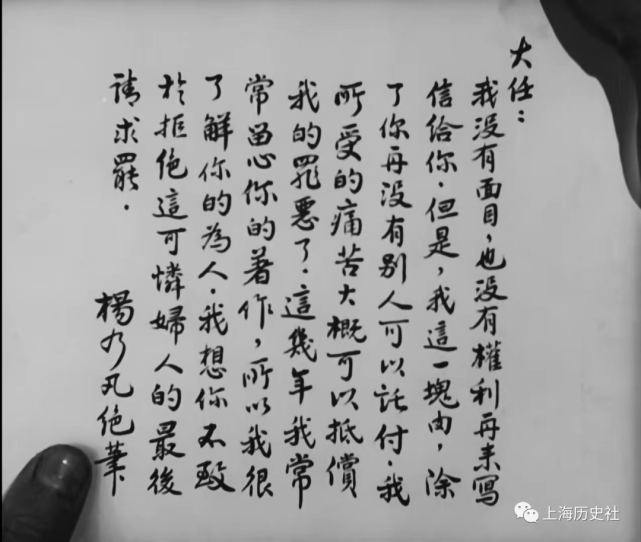 大任：
我没有面目，也没有權利再来寫
信给你．但是，我這一塊肉，除
了你再没有别人可以託付．我
所受的痛苦大概可以抵償
我的罪惡了．這幾年我常
常留心你的著作，所以我很
了解你的為人．我想你不致
於拒绝這可憐婦人的最後
請求罷．
楊乃凡绝筆
上海历史社